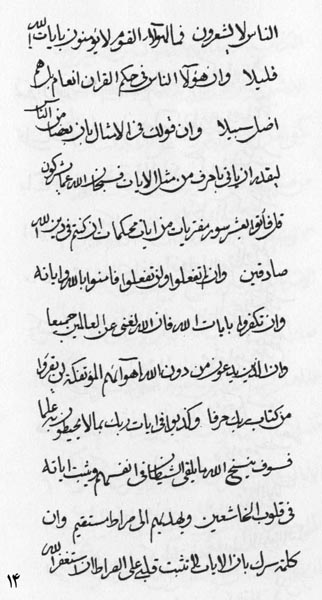 الناس لا يشعرون فما لهؤلاء القوم لا يؤمنون بايات الله الا
قليلا وان هؤلاء الناس فى حكم القران انعام بل هم
اضل سبيلا وان قولك فى الامثال بان بعضا من الناس
ليقدر ان ياتى باحرف من مثل الايات فسبحان الله عما يشركون
قل فأتوا بعشر سور مفتريات من ايات محكمات ان كنتم فى دين الله
صادقين وان لم تفعلوا ولن تفعلوا فامنوا بالله واياته
وان تكفروا بايات الله فان الله لغنى عن العالمين جميعا
وان الذين يدعون من دون الله اهوائهم المؤتفكة لن يقدروا
من كتاب ربك حرفا وكذبوا فى ايات ربك بما لا يحيطون به علما
فسوف ينسخ الله ما يلقى الشيطان فى انفسهم ويثبت اياته
فى قلوب الخاشعين ويهديهم الى صراط مستقيم وان
كلمة سرك بان الايات لم تثبت قلبى على الصراط ان استغفر الله
١٤